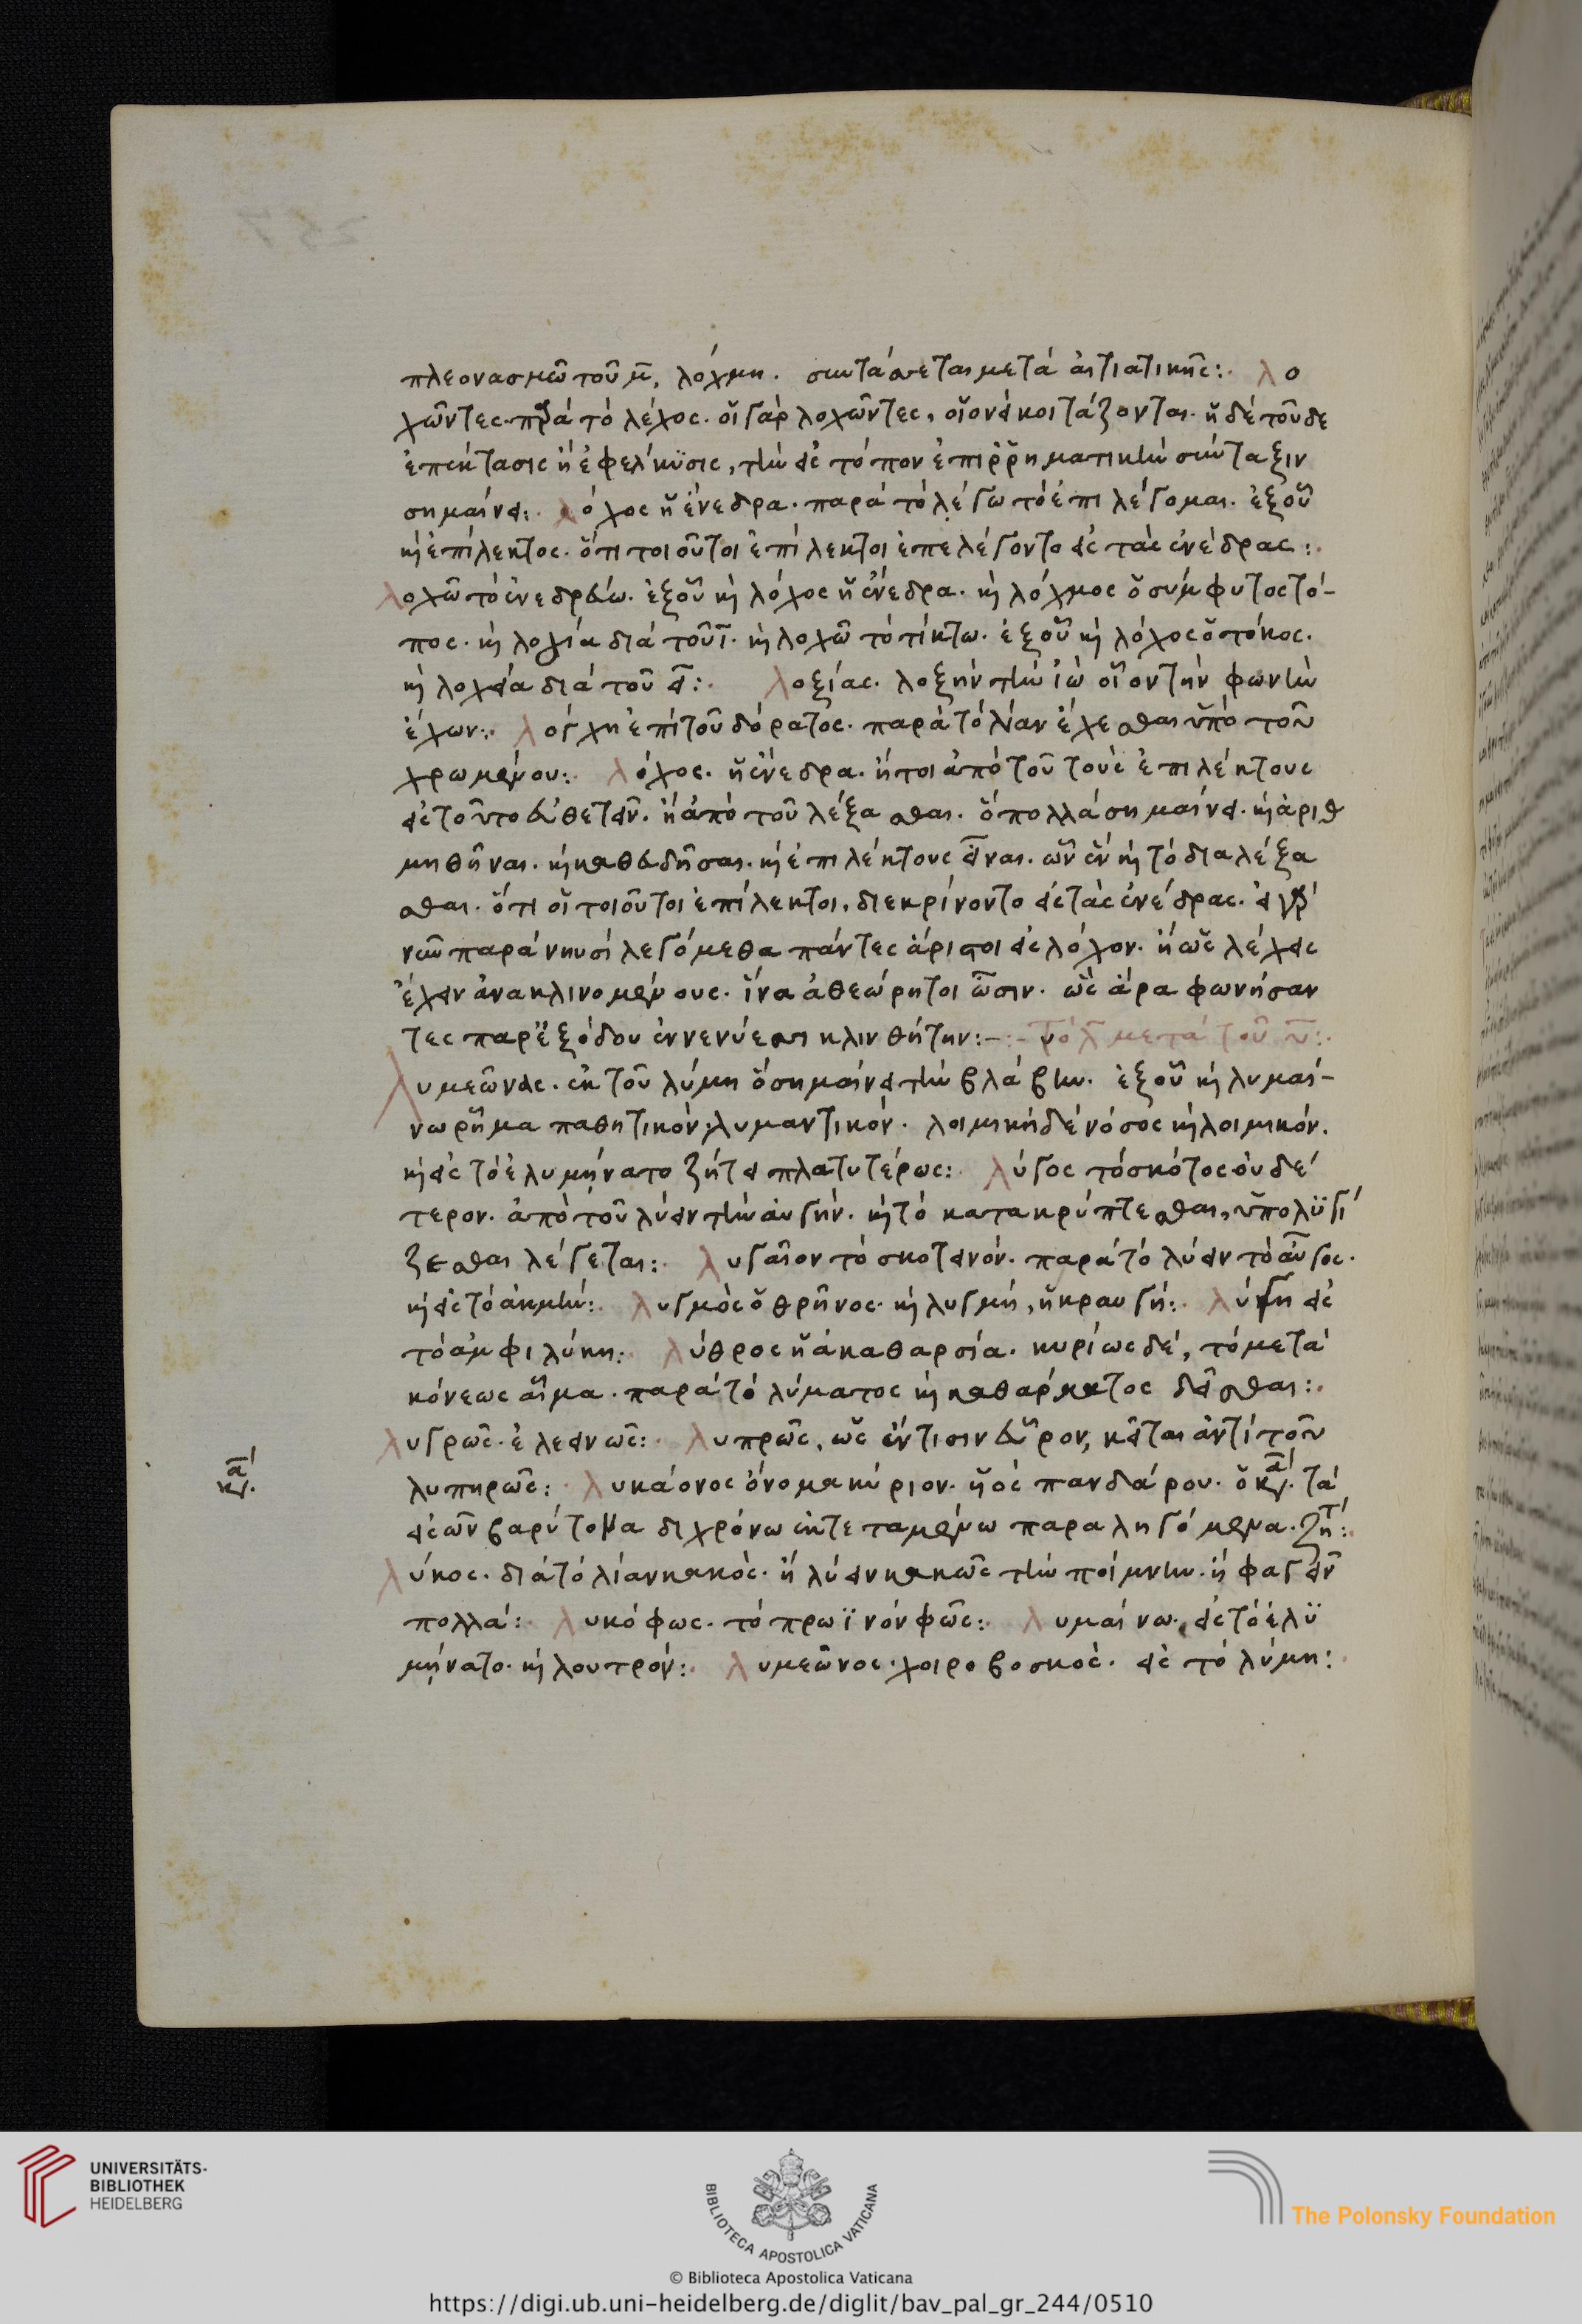 πλεονασμῶ τοῦ μ̄, λόχμη. συντάσσεται μετὰ αἰτιατικῆς:. λο
χῶντες. παρὰ τὸ λέχος. οἱ γὰρ λοχῶντες, οἱονεὶ κοιτάζονται. ἡ δὲ τοῦ δε
ἐπέκτασις ἢ ἐφελκϋσις, τὴν εἰς τόπον ἐπιρρηματικὴν σύνταξιν
σημαίνει:. λόχος ἡ ἐνέδρα. παρὰ τὸ λέγω τὸ ἐπιλέγομαι. ἐξ οὗ
καὶ ἐπίλεκτος. ὅτι τοιοῦτοι ἐπίλεκτοι ἐπελέγοντο εἰς τὰς ἐνέδρας:.
λοχῶ τὸ ἐνεδρεύω. ἐξ οὗ καὶ λόχος ἡ ἐνέδρα. καὶ λόχμος ὁ σύμφυτος τό-
πος. καὶ λοχία διὰ τοῦ ῑ. καὶ λοχῶ τὸ τίκτω. ἐξ οὗ καὶ λόχος ὁ τόκος.
καὶ λοχεία διὰ τοῦ ει:. λοξίας. λοξὴν τὴν ἰὼ οἷον τὴν φωνὴν
ἔχων:. λόγχη ἐπὶ τοῦ δόρατος. παρὰ τὸ λίαν ἔχεσθαι ὑπὸ τοῦ
χρωμένου:. λόχος. ἡ ἐνέδρα. ἤτοι ἀπὸ τοῦ τοὺς ἐπιλέκτους
εἰς τοῦτο εὐθετεῖν. ἢ ἀπὸ τοῦ λέξασθαι. ὃ πολλὰ σημαίνει. καὶ ἀριθ
μηθῆναι. καὶ καθευδῆσαι. καὶ ἐπιλέκτους εἶναι. ὧν ἓν καὶ τὸ διαλέξα
σθαι. ὅτι οἱ τοιοῦτοι ἐπίλεκτοι, διεκρίνοντο εἰς τὰς ἐνέδρας. εἰ γὰρ
νῦν παρὰ νηυσὶ λεγόμεθα πάντες ἄριστοι εἰς λόχον. ἢ ὡς λέχεις
ἔχειν ἀνακλινομένους. ἵνα ἀθεώρητοι ὦσιν. ὣς ἄρα φωνήσαν
τες παρ' ἐξ ὁδοῦ ἐν νενύεσσι κλινθήτην:- τὸ λ̄ μετὰ τοῦ ῡ:.
Λυμεῶνεις. ἐκ τοῦ λύμη ὃ σημαίνει τὴν βλάβην. ἐξ οὗ καὶ λυμαί-
νω ῥῆμα παθητικὸν. λυμαντικόν. λοιμικὴ δὲ νόσος καὶ λοιμικόν.
καὶ εἰς τὸ ἐλυμήνατο ζήτει πλατυτέρως:. λύγος τὸ σκότος οὐδέ
τερον. ἀπὸ τοῦ λύειν τὴν αὐγήν. καὶ τὸ κατακρύπτεσθαι, ὑπολϋγί
ζεσθαι λέγεται:. λυγαῖον τὸ σκοτεινόν. παρὰ τὸ λύειν τὸ αὖγος.
καὶ εἰς τὸ ἀκμήν:. λυγμὸς ὁ θρῆνος. καὶ λυγμή, ἡ κραυγή:. λύγη εἰς
τὸ ἀμφιλύκη:. λύθρος ἡ ἀκαθαρσία. κυρίως δέ, τὸ μετὰ
κόνεως αἷμα. παρὰ τὸ λύματος καὶ καθάρματος δεῖσθαι:.
λυγρῶς. ἐλεεινῶς:. λυπρῶς, ὡς ἔν τισιν εὗρον, κεῖται ἀντὶ τοῦ
λυπηρῶς:. λυκάονος ὄνομα κύριον. ἡὸς πανδάρου. ὁ κα΄. τὰ
εἰς ων βαρύτονα διχρόνω ἐκτεταμένω παραληγόμενα. ζητ:.
λύκος. διὰ τὸ λίαν κακός. ἢ λύειν κακῶς τὴν ποίμνην. ἢ φαγεῖν
πολλά:. λυκόφως. τὸ πρωϊνὸν φῶς:. λυμαίνω. εἰς τὸ ἐλϋ
μήνατο. καὶ λουτρόν:. λυμεῶνος. χοιροβοσκός. εἰς τὸ λύμη:.
UNIVERSITÄTS-
BIBLIOTHEK
HEIDELBERG
BIBLIOTECA APOSTOLICA VATICANA
The Polonsky Foundation
© Biblioteca Apostolica Vaticana
https://digi.ub.uni-heidelberg.de/diglit/bav_pal_gr_244/0510